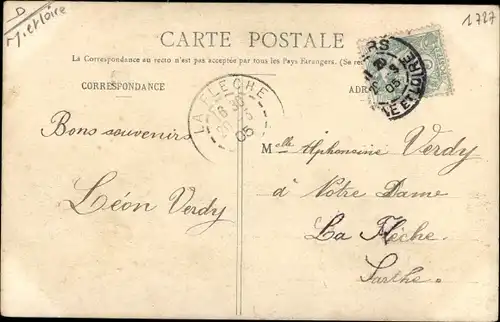 D
M. et Loire
1727
CARTE POSTALE
La Correspondance au recto n'est pas acceptée par tous les Pays Étrangers. (Se
CORRESPONDANCE
ADR
RS
NE ET LOIRE
05
LA FLECHE
16 30
05
Bons souvenirs
Léon Verdy
Melle Alphonsine Verdy
à Notre Dame
La Flèche
Sarthe.